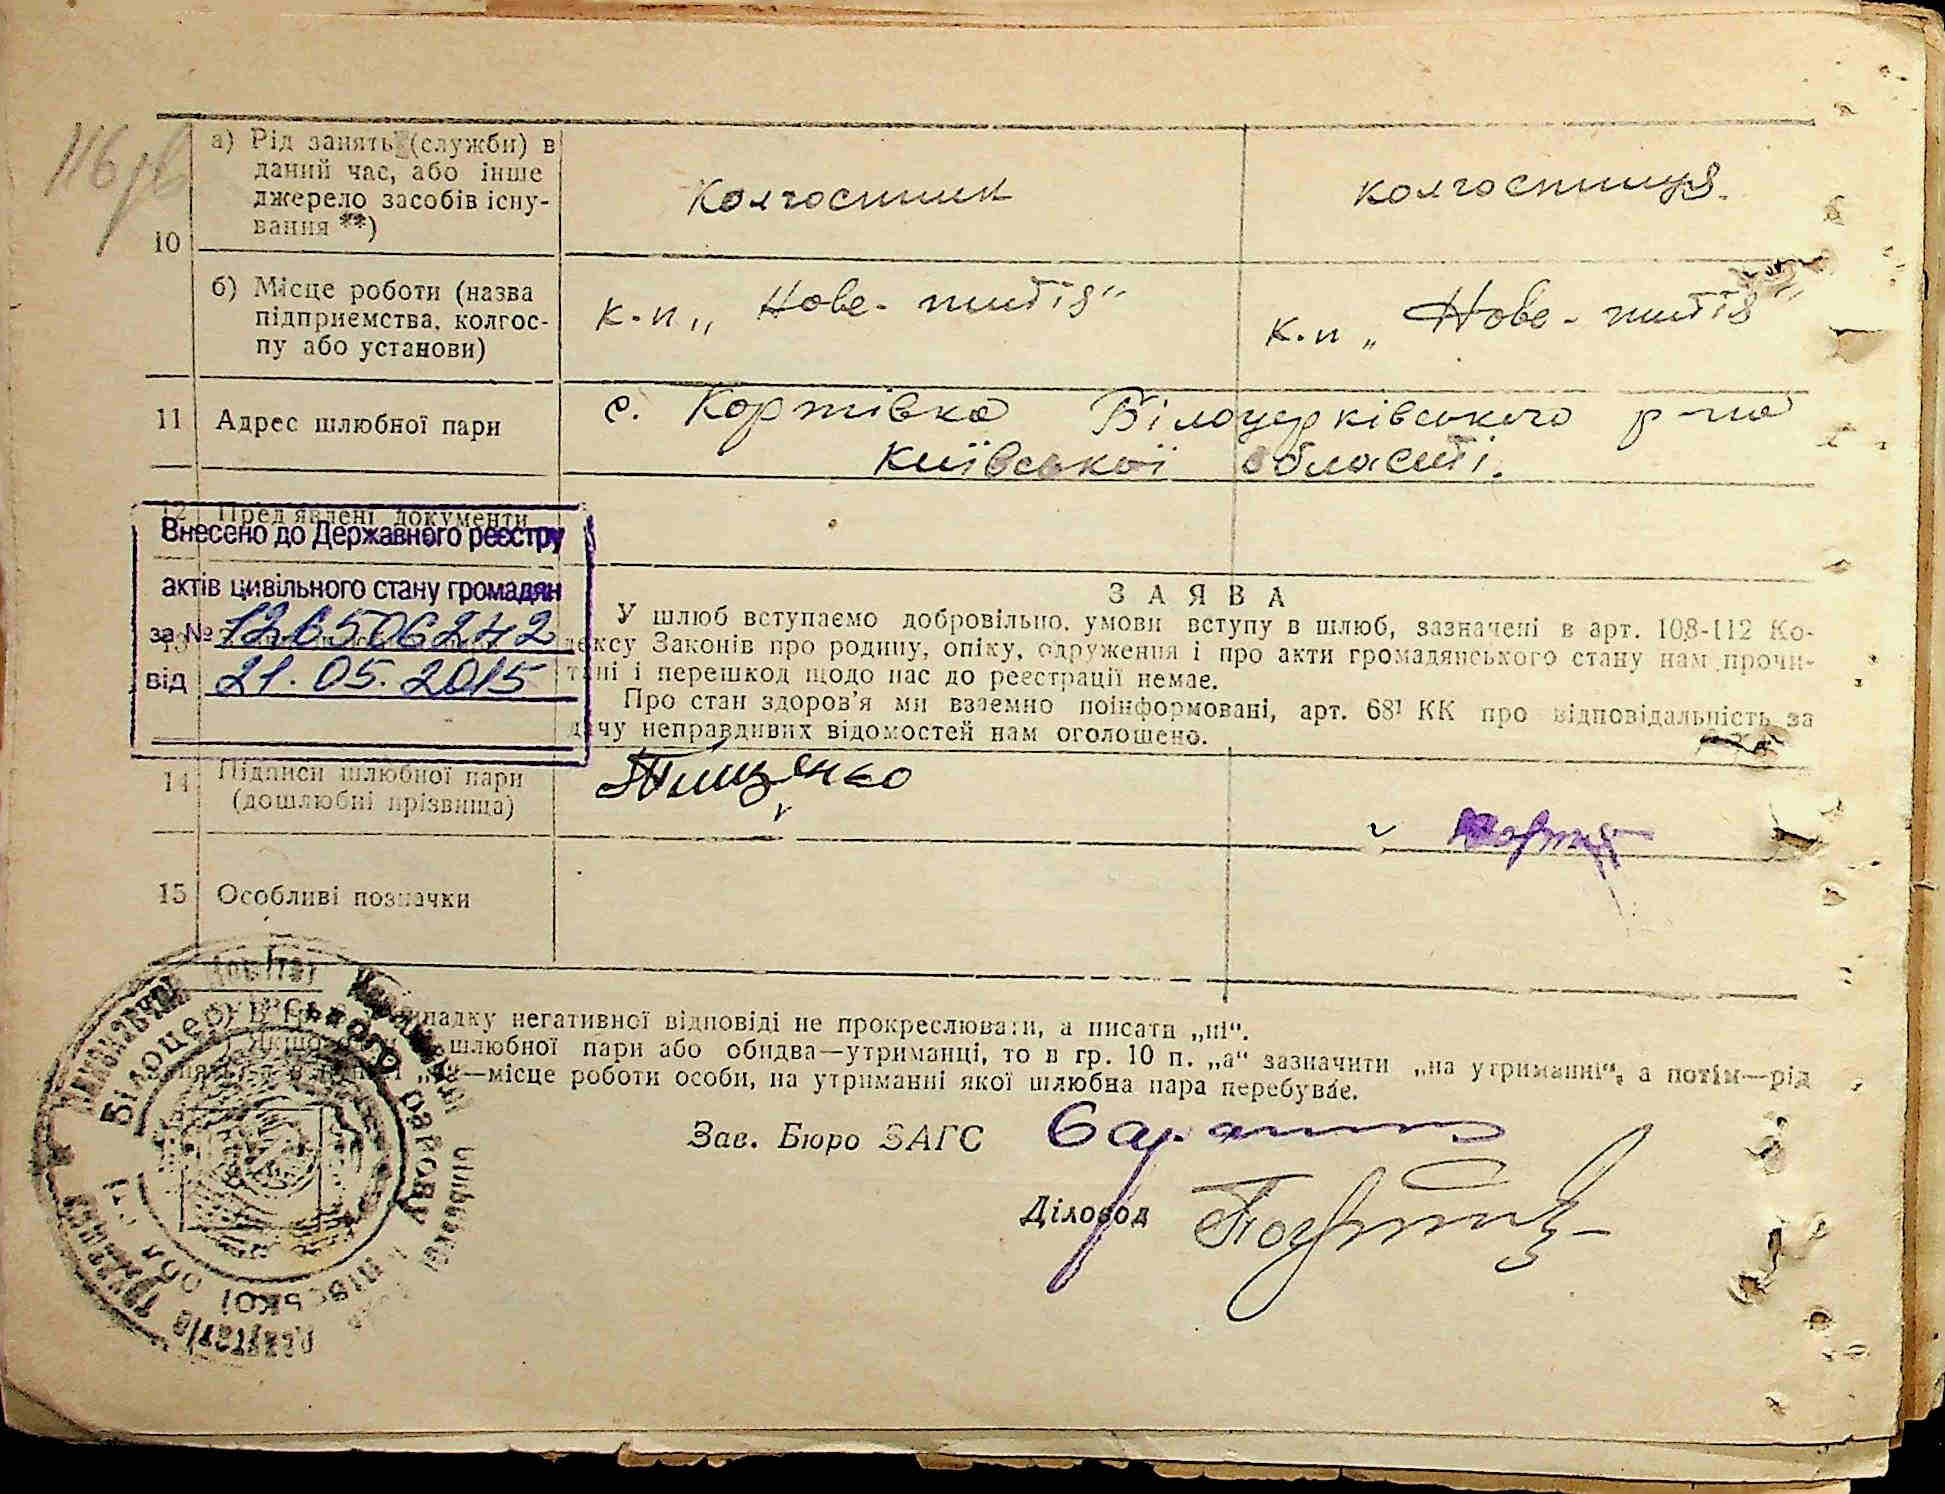 116 зв
10 а) Рід занять (служби) в
даний час, або інше
джерело засобів існу-
вання **)
Колгоспник
колгоспниця.
б) Місце роботи (назва
підприємства, колгос-
пу або установи)
к.п „Нове-життя"
к.п „Нове-життя"
11 Адрес шлюбної пари
с. Коржівка Білоцерківського р-на
Київської області.
12 Пред'явлені документи
Внесено до Державного реєстру
актів цивільного стану громадян
за №
від 21.05.2015
13
ЗАЯВА
У шлюб вступаємо добровільно, умови вступу в шлюб, зазначені в арт. 108-112 Ко-
дексу Законів про родину, опіку, одруження і про акти громадянського стану нам прочи-
тані і перешкод щодо нас до реєстрації немає.
Про стан здоров'я ми взаємно поінформовані, арт. 68¹ КК про відповідальність за
дачу неправдивих відомостей нам оголошено.
14 Підписи шлюбної пари
(дошлюбні прізвища)
Тищенко
15 Особливі позначки
випадку негативної відповіді не прокреслювати, а писати „ні".
Якщо шлюбної пари або обидва—утриманці, то в гр. 10 п. „а" зазначити „на утриманні", а потім—рід
—місце роботи особи, на утриманні якої шлюбна пара перебуває.
Зав. Бюро ЗАГС
Діловод
Білоцерківського району Київської обл.